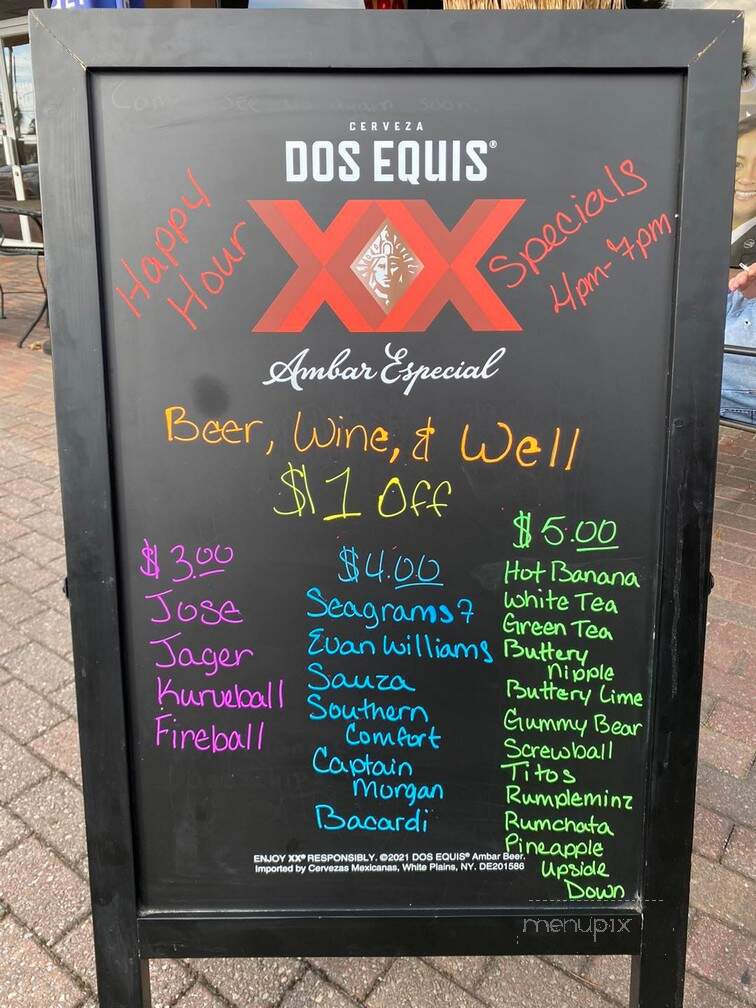 CERVEZA
DOS EQUIS®
XX
Happy
Hour
Specials
4pm-7pm
Ambar Especial
Beer, Wine, & Well
$1 Off
$3.00
Jose
Jager
Kurveball
Fireball
$4.00
Seagrams 7
Evan Williams
Sauza
Southern
Comfort
Captain
Morgan
Bacardi
$5.00
Hot Banana
White Tea
Green Tea
Buttery
nipple
Buttery Lime
Gummy Bear
Screwball
Titos
Rumpleminz
Rumchata
Pineapple
Upside
Down
ENJOY XX® RESPONSIBLY. ©2021 DOS EQUIS® Ambar Beer.
Imported by Cervezas Mexicanas, White Plains, NY. DE201586
menupix